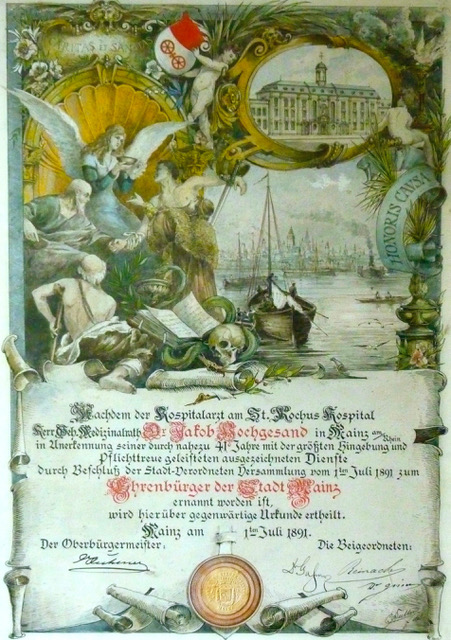 HONORIS CAVSA
Nachdem der Hospitalarzt am St. Rochus Hospital
Herr Geh. Medizinalrath Dr. Jakob Hochgesand in Mainz am Rhein
in Anerkennung seiner durch nahezu 41 Jahre mit der größten Hingebung und
Pflichttreue geleisteten ausgezeichneten Dienste
durch Beschluß der Stadt-Verordneten Versammlung vom 1ten Juli 1891 zum
Ehrenbürger der Stadt Mainz
ernannt worden ist,
wird hierüber gegenwärtige Urkunde ertheilt.
Mainz am 1ten Juli 1891.
Der Oberbürgermeister:
Die Beigeordneten:
Reinach